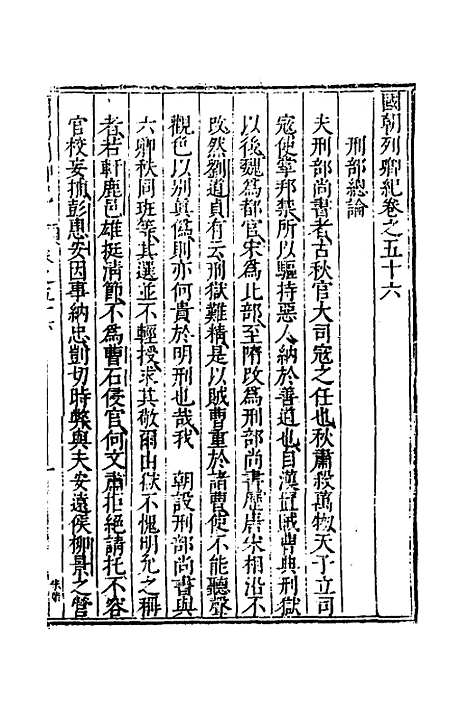 國朝列卿紀卷之五十六
刑部總論
夫刑部尚書者古秋官大司寇之任也秋肅殺萬物天子立司
寇使掌邦禁所以驅持惡人納於善道也自漢置賊曹典刑獄
以後魏爲都官宋爲比部至隋改爲刑部尚書歷唐宋相沿不
改然劉道貞有云刑獄難精是以賊曹重於諸曹使不能聽聲
觀色以別真僞則亦何貴於明刑也哉我 朝設刑部尚書與
六卿秩同班等其選並不輕授求其敬爾由獄不愧明允之稱
者若軒鹿邑雄挺清節不爲曹石侵官何文肅拒絕請托不容
官校妄摭彭惠安因事納忠剴切時弊與夫安遠侯柳景之瞥